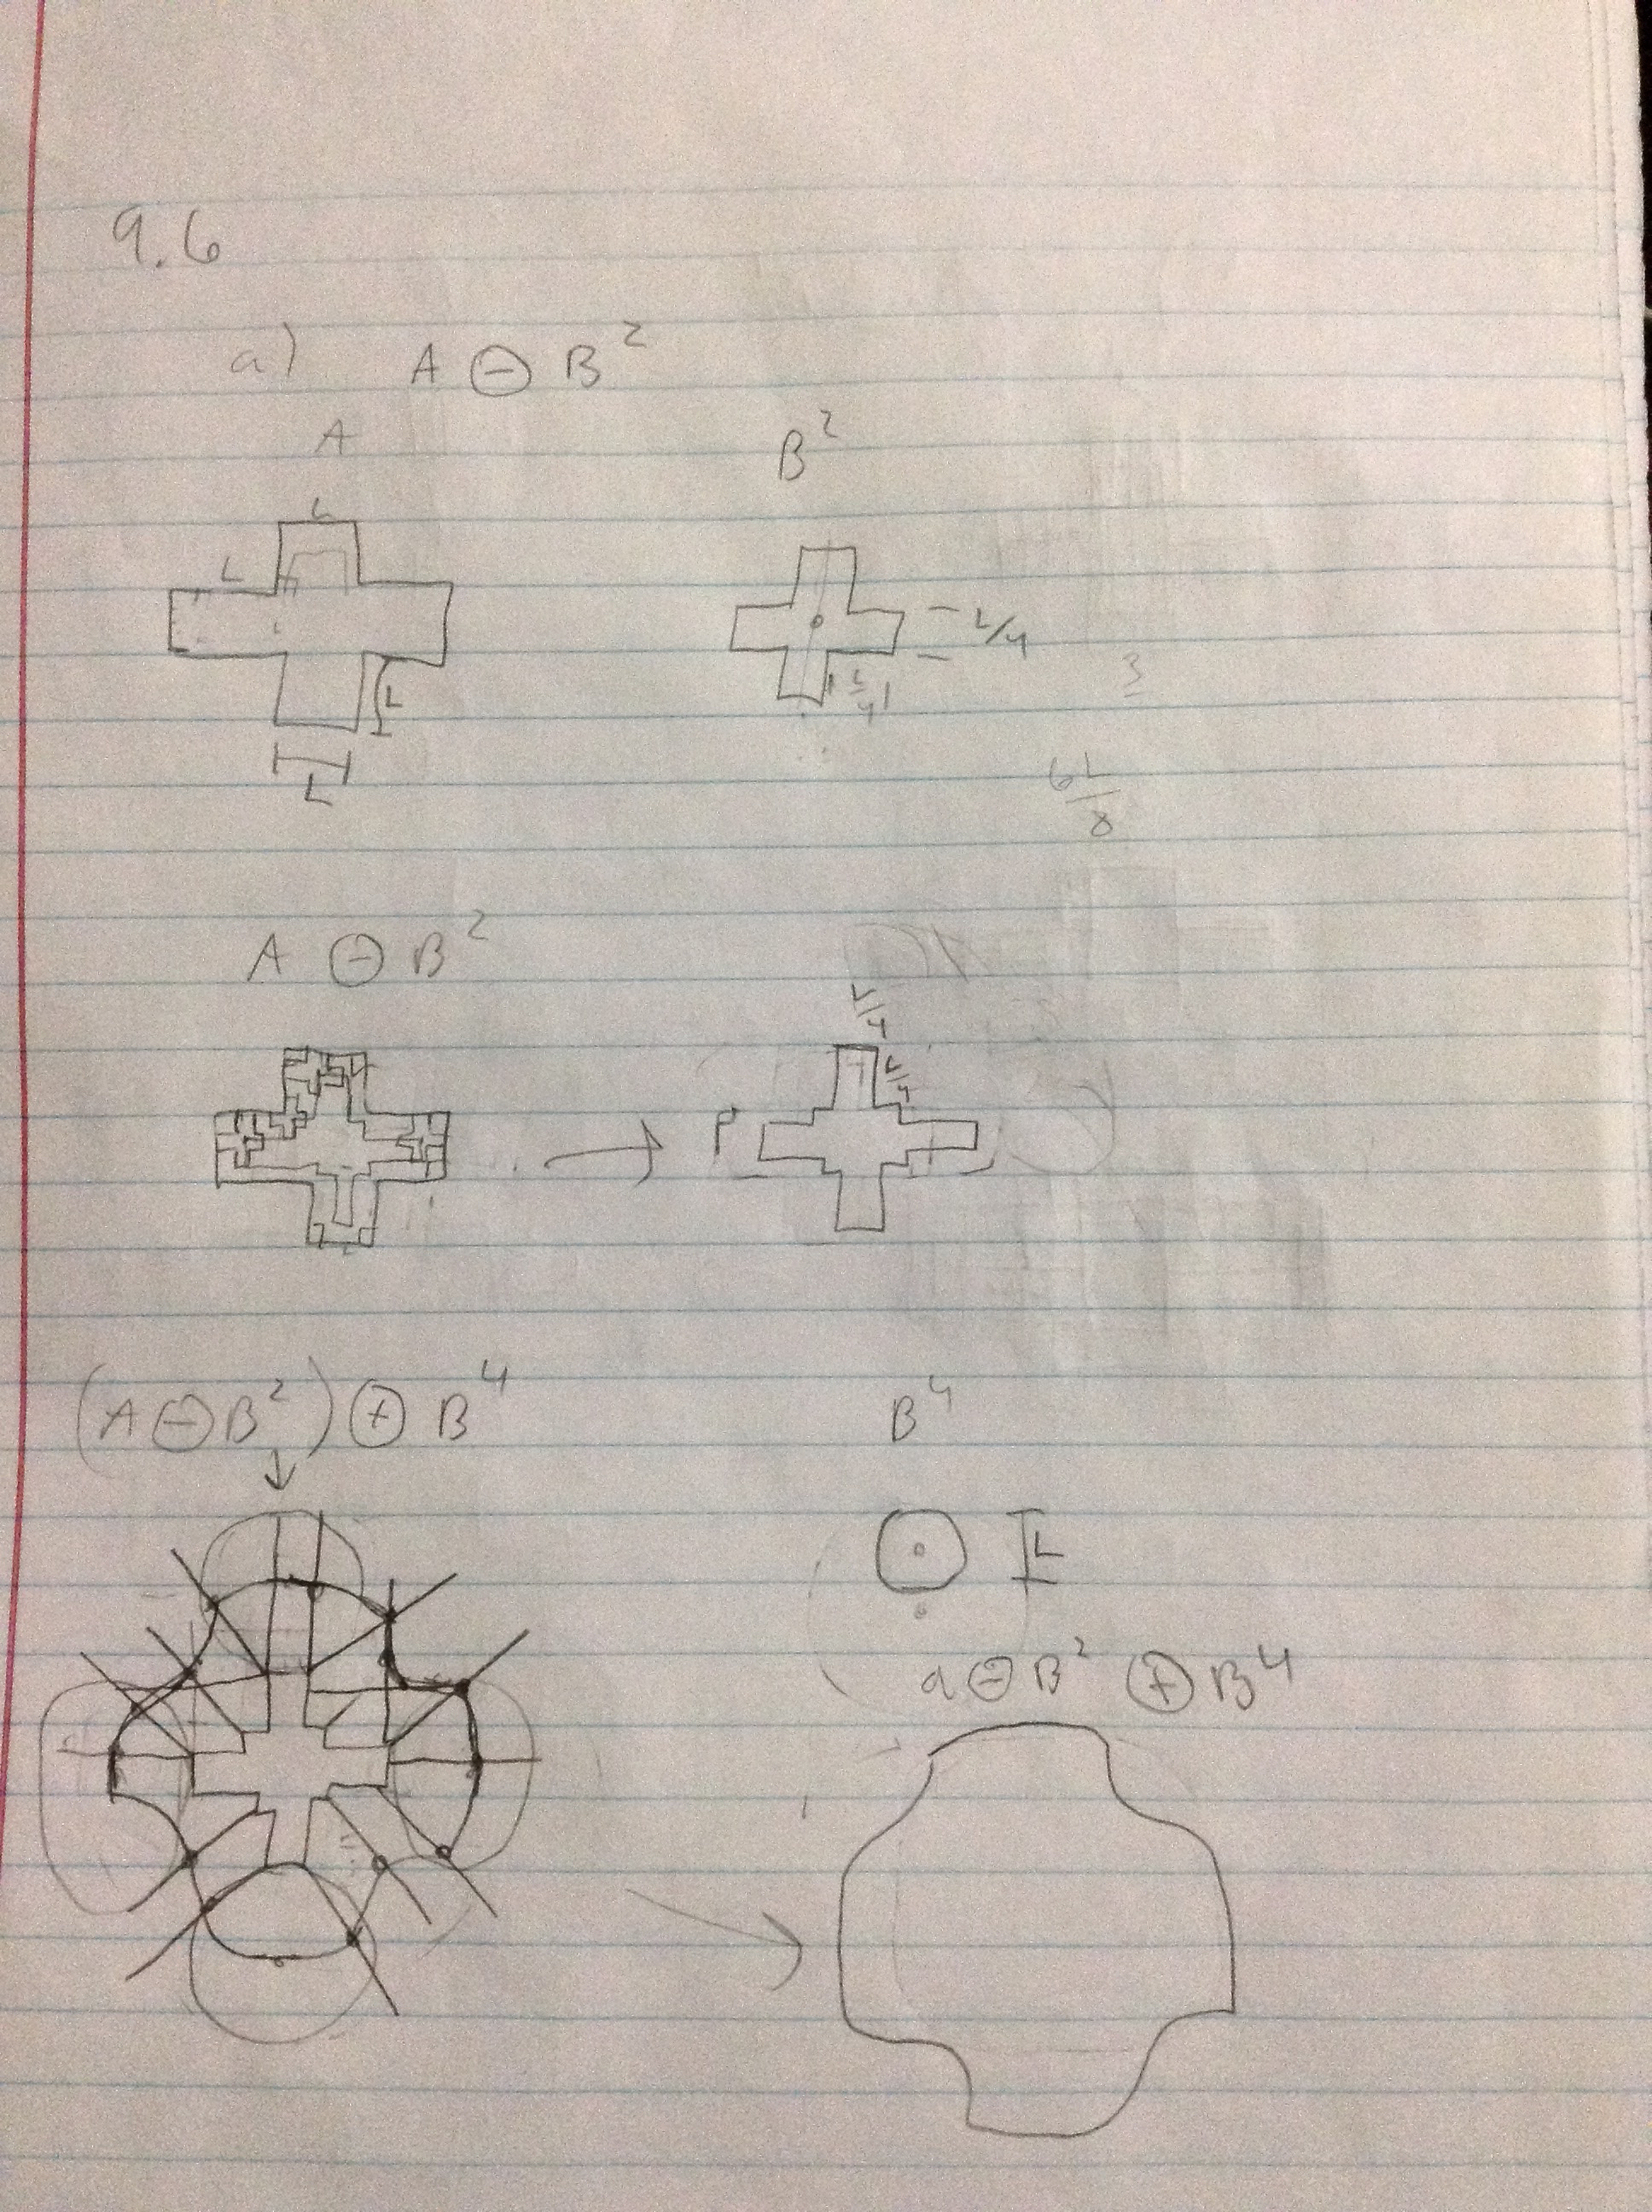 9.6
a) A ⊖ B²
A B²
L
L
L/4
L
L/4
3
L
6L/8
A ⊖ B²
L/4
L/4
(A ⊖ B²) ⊕ B⁴ B⁴
L
a ⊖ B² ⊕ B⁴